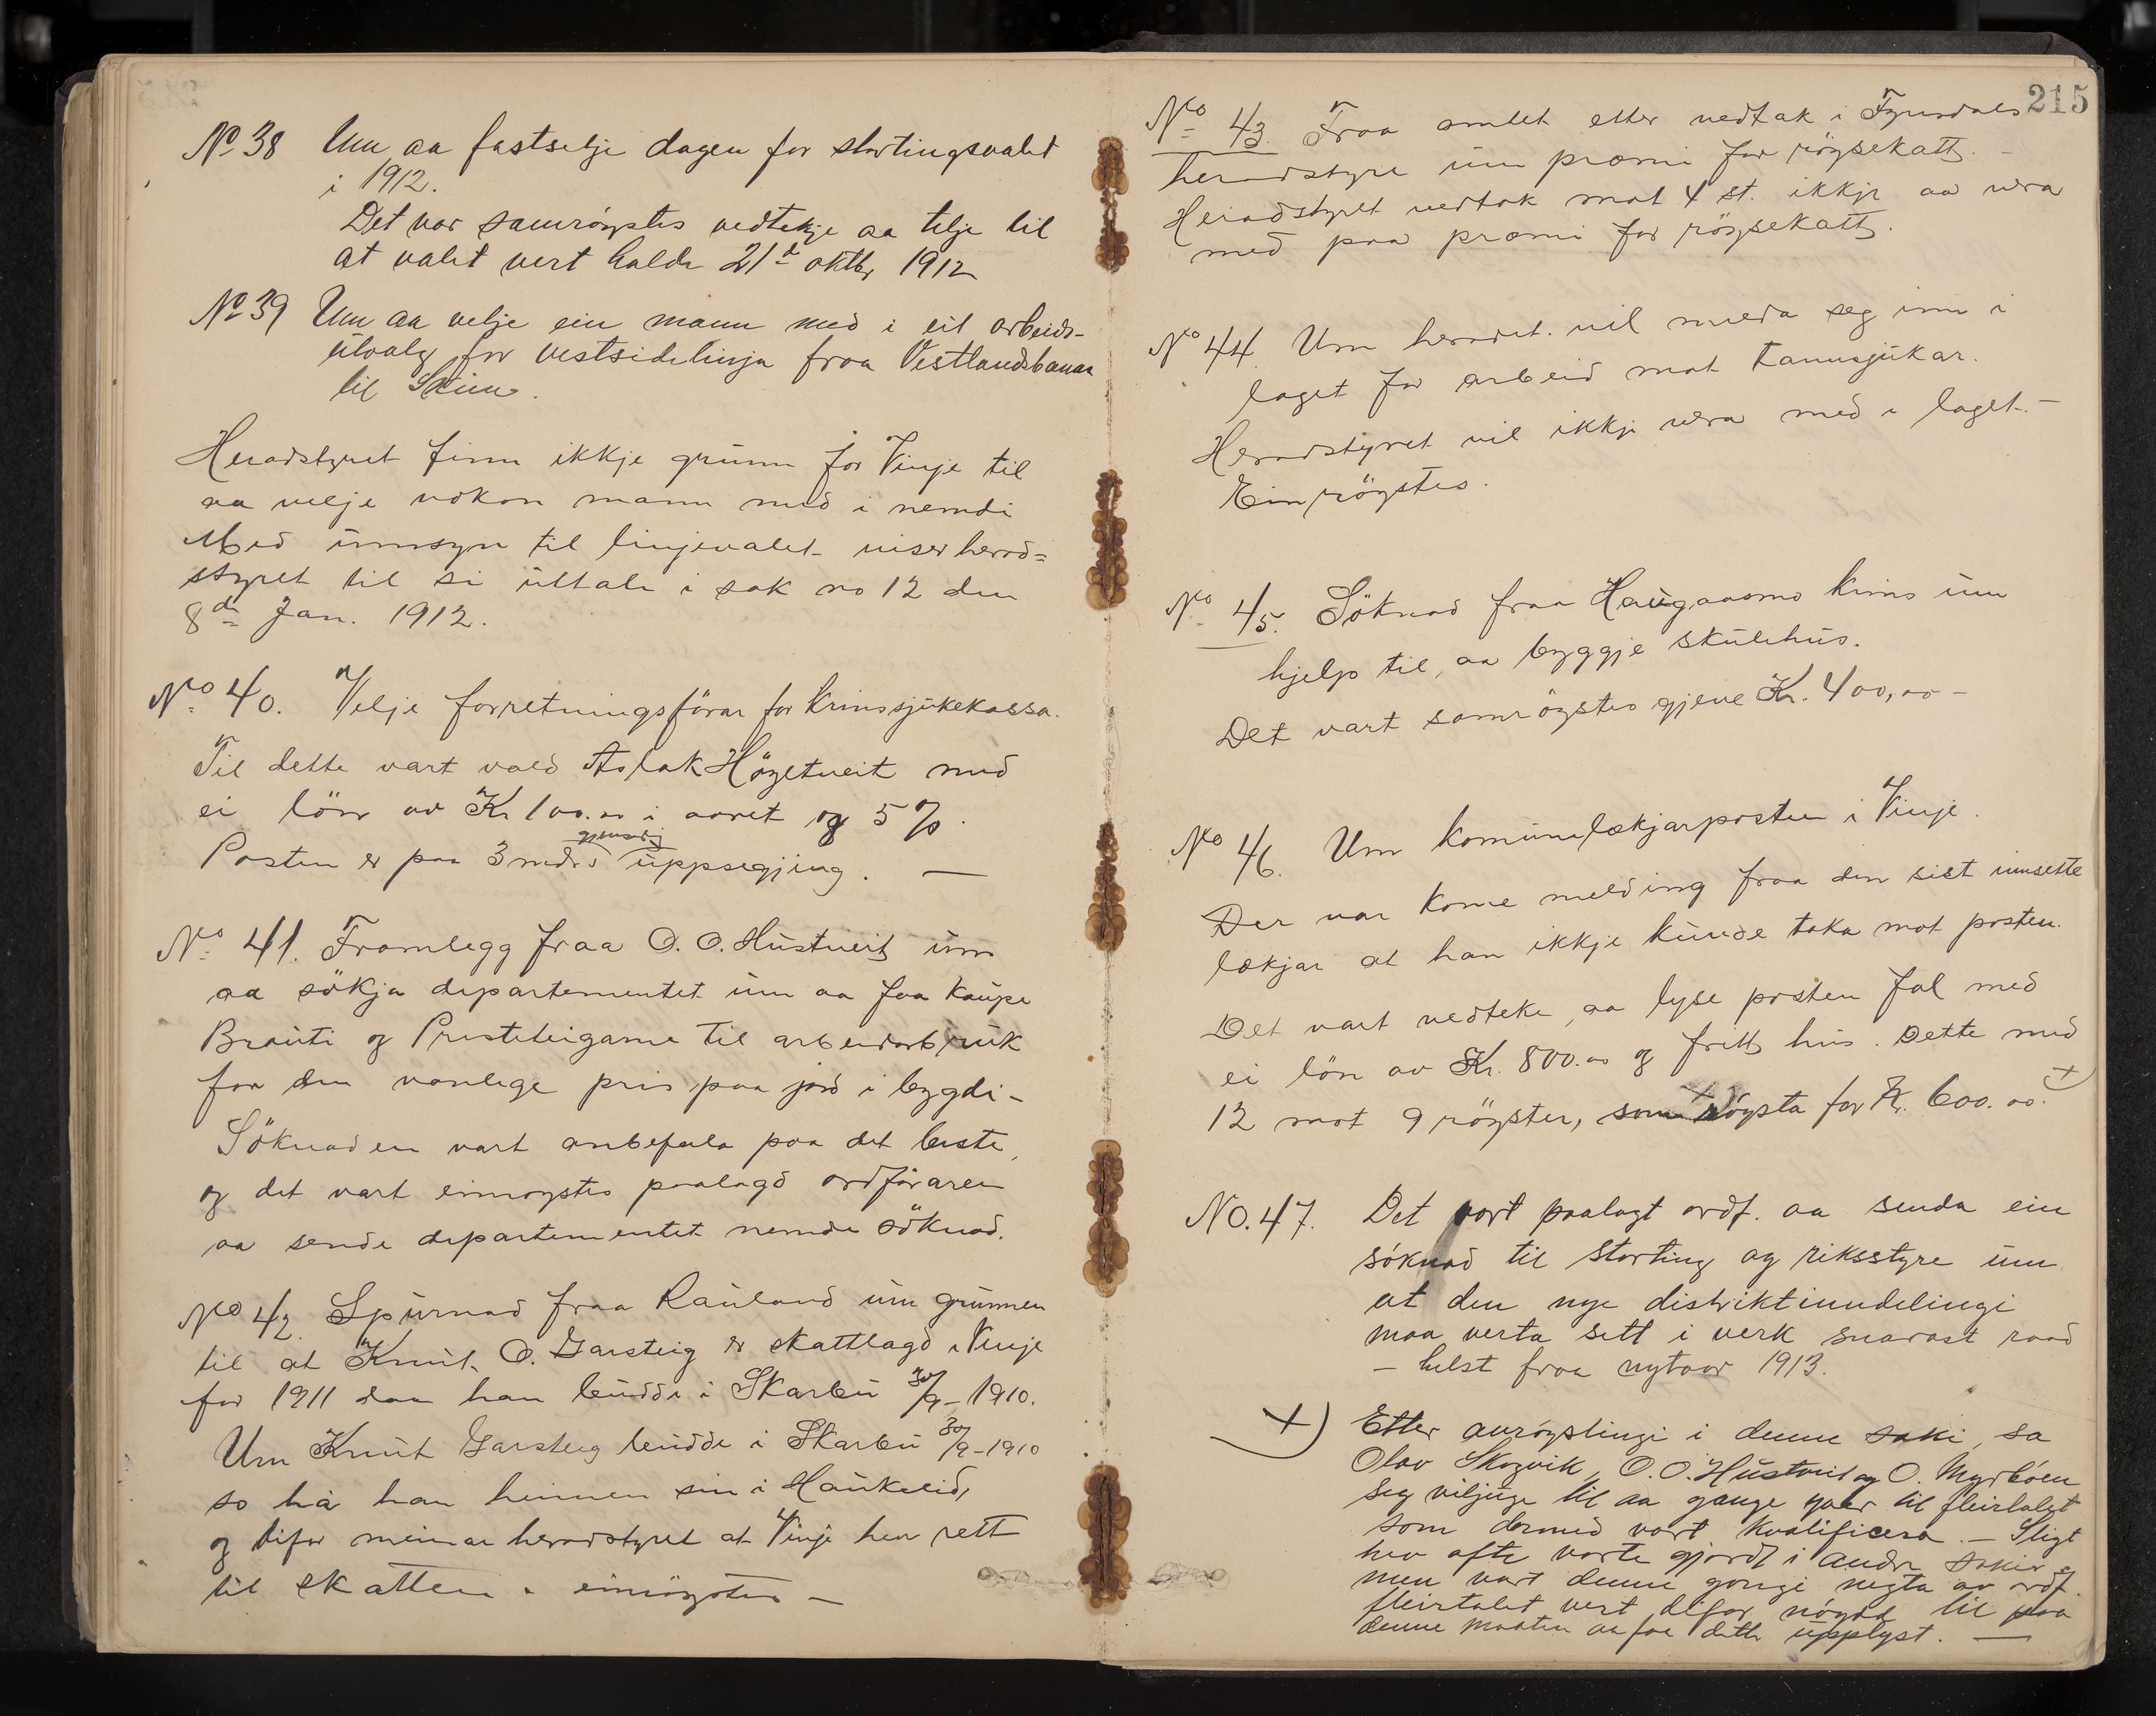 No 38 Um aa fastselje dagen for stortingsvalet
i 1912.
Det var samröystes vedtekje aa telje til
at valet vert halde 21de oktbr 1912
No 39 Um aa velje ein mann med i eit arbeids-
utvalg for vestsidelinja fraa Vestlandsbanan
til Skien.
Heradstyret finn ikkje grunn for Vinje til
aa velje nokon mann med i nemdi
Med umsyn til linjevalet viser herad=
styret til si uttale i sak no 12 den
8de Jan. 1912.
No 40. Velje forretningsförar for Krinssjukekassa.
Til dette vart vald Aslak Högetveit med
ei lön av Kr 100.00 i aaret og 5 %.
gjensidig
Posten er paa 3 mdrs uppsegjing. —
No 41. Framlegg fraa O. O. Hustveit um
aa sökja departementet um aa faa kaupe
Brauti og Presteteigane til arbeidarbruk
for den vanlege pris paa jord i bygdi -
Söknaden vart anbefala paa det beste,
og det vart einröystes paalagd ordföraren
aa sende departementet nemde söknad.
No 42. Spurnad fraa Rauland um grunnen
til at Knut O. Garsteig er skattlagd i Vinje
for 1911 daa han budde i Skarbu 30/9-1910.
Um Knut Garsteig budde i Skarbu 30/9-1910
so ha han heimen sin i Haukelid,
og difor meinar heradstyret at Vinje hev rett
til skatten. einröystes —
215
No 43. Fraa amtet etter vedtak i Fyrisdals
heradstyre um præmi for röysekatt. -
Heradstyret vedtok mot 4 st. ikkje aa vera
med paa præmi for röysekatt.
No 44. Um heradet vil melda seg inn i
laget for arbeid mot tannsjukar.
Heradstyret vil ikkje vera med i laget. -
Einröystes.
No 45. Söknad fraa Haugaasmo krins um
hjelp til, aa byggje skulehus.
Det vart samröystes gjeve Kr. 400,00 -
No 46. Um komunelækjarposten i Vinje.
Der var kome melding fraa den sist innsette
lækjar at han ikkje kunde taka mot posten.
Det vart vedteke, aa lyse posten fal med
ei lön av Kr. 800.00 og fritt hus. Dette med
12 mot 9 röyster, som röysta for Kr. 600.00. +)
No. 47. Det vart paalagt ordf. aa senda ein
söknad til storting og riksstyre um
at den nye distriktinndelingi
maa verta sett i verk snarast raad
- helst fraa nytaar 1913.
+) Etter avröystingi i denne saki, sa
Olav Skogvik, O. O. Hustveit og O. Myrböen
seg viljuge til aa gange yver til fleirtalet
som dermed vart kvalificera. - Sligt
hev ofte vorte gjordt i andre sakir,
men vart denne gongi negta av ordf.
fleirtalet vert difor nöydd til paa
denne maaten aa faa dette upplyst. —